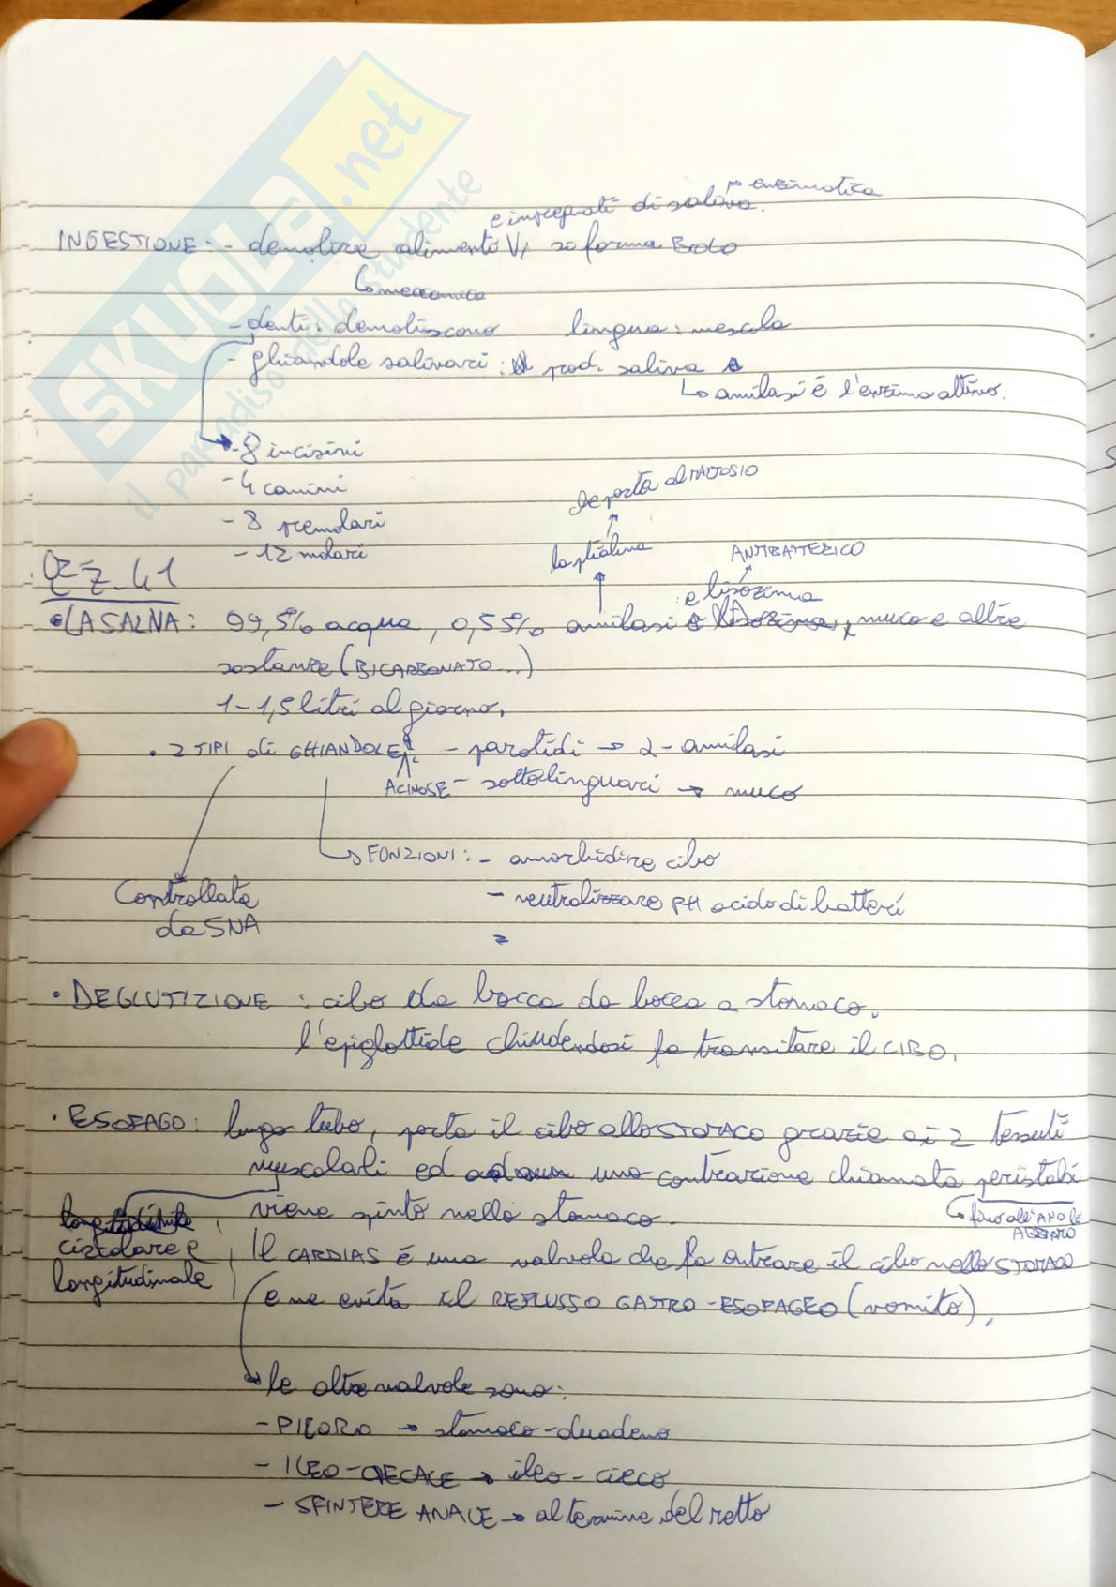 SKUOLA.net
il paradiso dello studente
enzimatica
e impregnati di saliva.
INGESTIONE: - demolire alimenti V, si forma BOLO
meccanica
- denti: demoliscono lingua: mescola
- ghiandole salivari: prod. saliva
amilasi é l'enzima attivo.
- 8 incisivi
- 4 canini
- 8 premolari
- 12 molari
dr porta al MALTOSIO
la ptialina
ANTIBATTERICO
e lisozima
LA SALIVA: 99,5% acqua, 0,55% amilasi , muco e altre
sostanze (BICARBONATO...)
1-1,5 litri al giorno.
• 2 TIPI di GHIANDOLE: - parotidi → 2-amilasi
ACINOSE - sottolinguari → muco
FUNZIONI: - amorbidire cibo
Controllata
- neutralizzare PH acido di batteri
da SNA
• DEGLUTIZIONE: cibo da bocca da bocca a stomaco.
l'epiglottide chiudendosi fa transitare il CIBO.
• ESOFAGO: lungo tubo, porta il cibo allo STOMACO grazie ai 2 tessuti
muscolari ed una contrazione chiamata peristalsi
viene spinto nello stomaco.
fino all'ANO
circolare e
longitudinale
Il CARDIAS é una valvola che fa entrare il cibo nello STOMACO
e ne evita il REFLUSSO GASTRO-ESOFAGEO (vomito),
le altre valvole sono:
- PILORO → stomaco-duodeno
- ILEO-CIECALE → ileo-cieco
- SFINTERE ANALE → al termine del retto